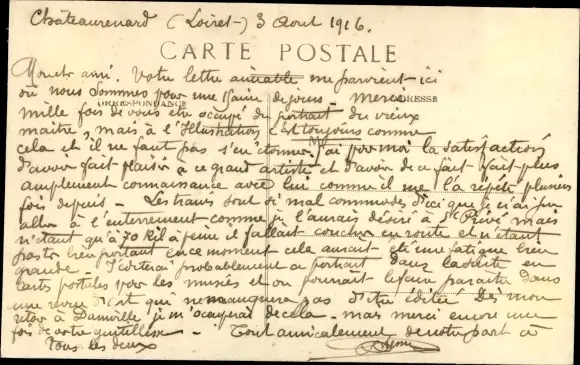 Châteaurenard (Loiret) 3 Aout 1916.
CARTE POSTALE
Mon cher ami. Votre lettre aimable me parvient ici
où nous sommes pour une 15aine de jours - merci
CORRESPONDANCE
ADRESSE
mille fois de vous être occupé du portrait du vieux
maitre, mais à l'Illustration c'est toujours comme
cela et il ne faut pas s'en étonner. j'ai pour moi la satisfaction
d'avoir fait plaisir à ce grand artiste et d'avoir de ce fait fait plus
amplement connaissance avec lui comme il me l'a répété plusieurs
fois depuis - Les trains sont si mal commodes d'ici que je n'ai pu
aller à l'enterrement comme je l'aurais désiré à St Privé mais
n'étant qu'à 70 kil à peine il fallait coucher en route et n'étant
pas très bien portant en ce moment cela aurait été une fatigue bien
grande - J'éditerai probablement ce portrait dans la suite en
carte postales pour les musées et on pourrait le faire paraitre dans
une revue d'art qui ne manquera pas d'être éditée. Dès mon
retour à Damville je m'occuperai de cela - mais merci encore une
fois de votre gentillesse - Tout amicalement de notre part à
tous les deux